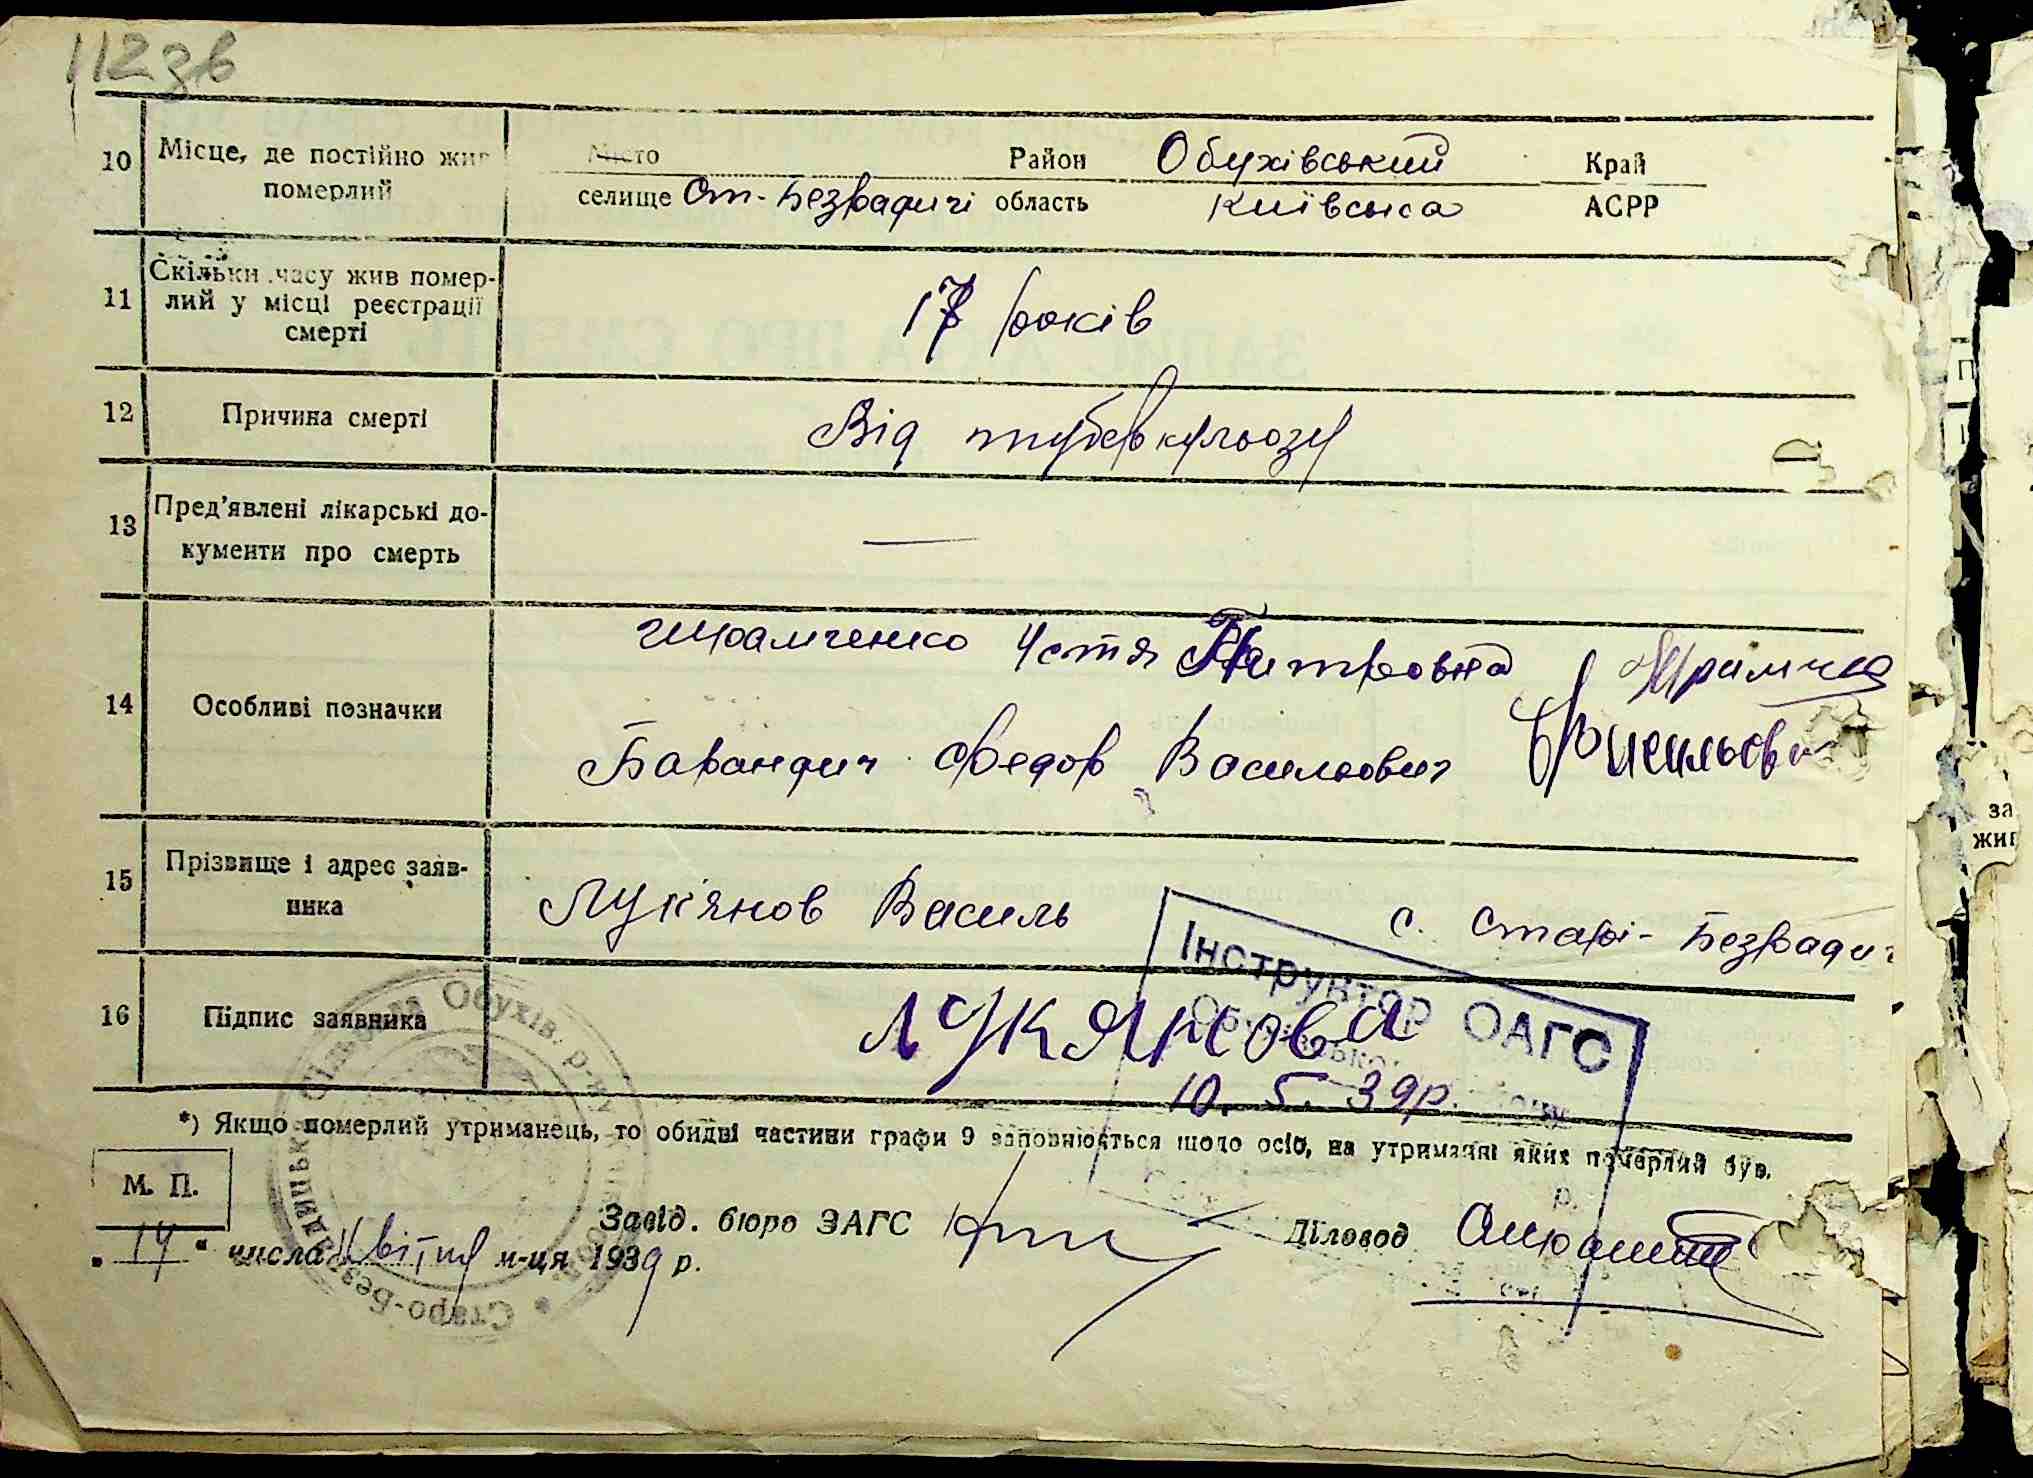 112зв
10 Місце, де постійно жив померлий
Місто Район Обухівський Край
селище Ст-Безрадичі область Київська АСРР
11 Скільки часу жив помер-
лий у місці реєстрації
смерті
17 років
12 Причина смерті Від туберкульозу
13 Пред'явлені лікарські до-
кументи про смерть —
14 Особливі позначки
Шрамченко Устя Питровна
Барандич Федор Васильович
15 Прізвище і адрес заяв-
ника
Лук'янов Василь с. Старі-Безрадич
16 Підпис заявника Лукянова
Інструктор ОАГС
10. 5. 39р.
*) Якщо померлий утриманець, то обидві частини графи 9 заповнюються щодо осіб, на утриманні яких померлий був.
М. П.
Завід. бюро ЗАГС Діловод
„14" числа Квітня м-ця 1939 р.
Старо-Безрадицька Сільрада Обухів. р-ну